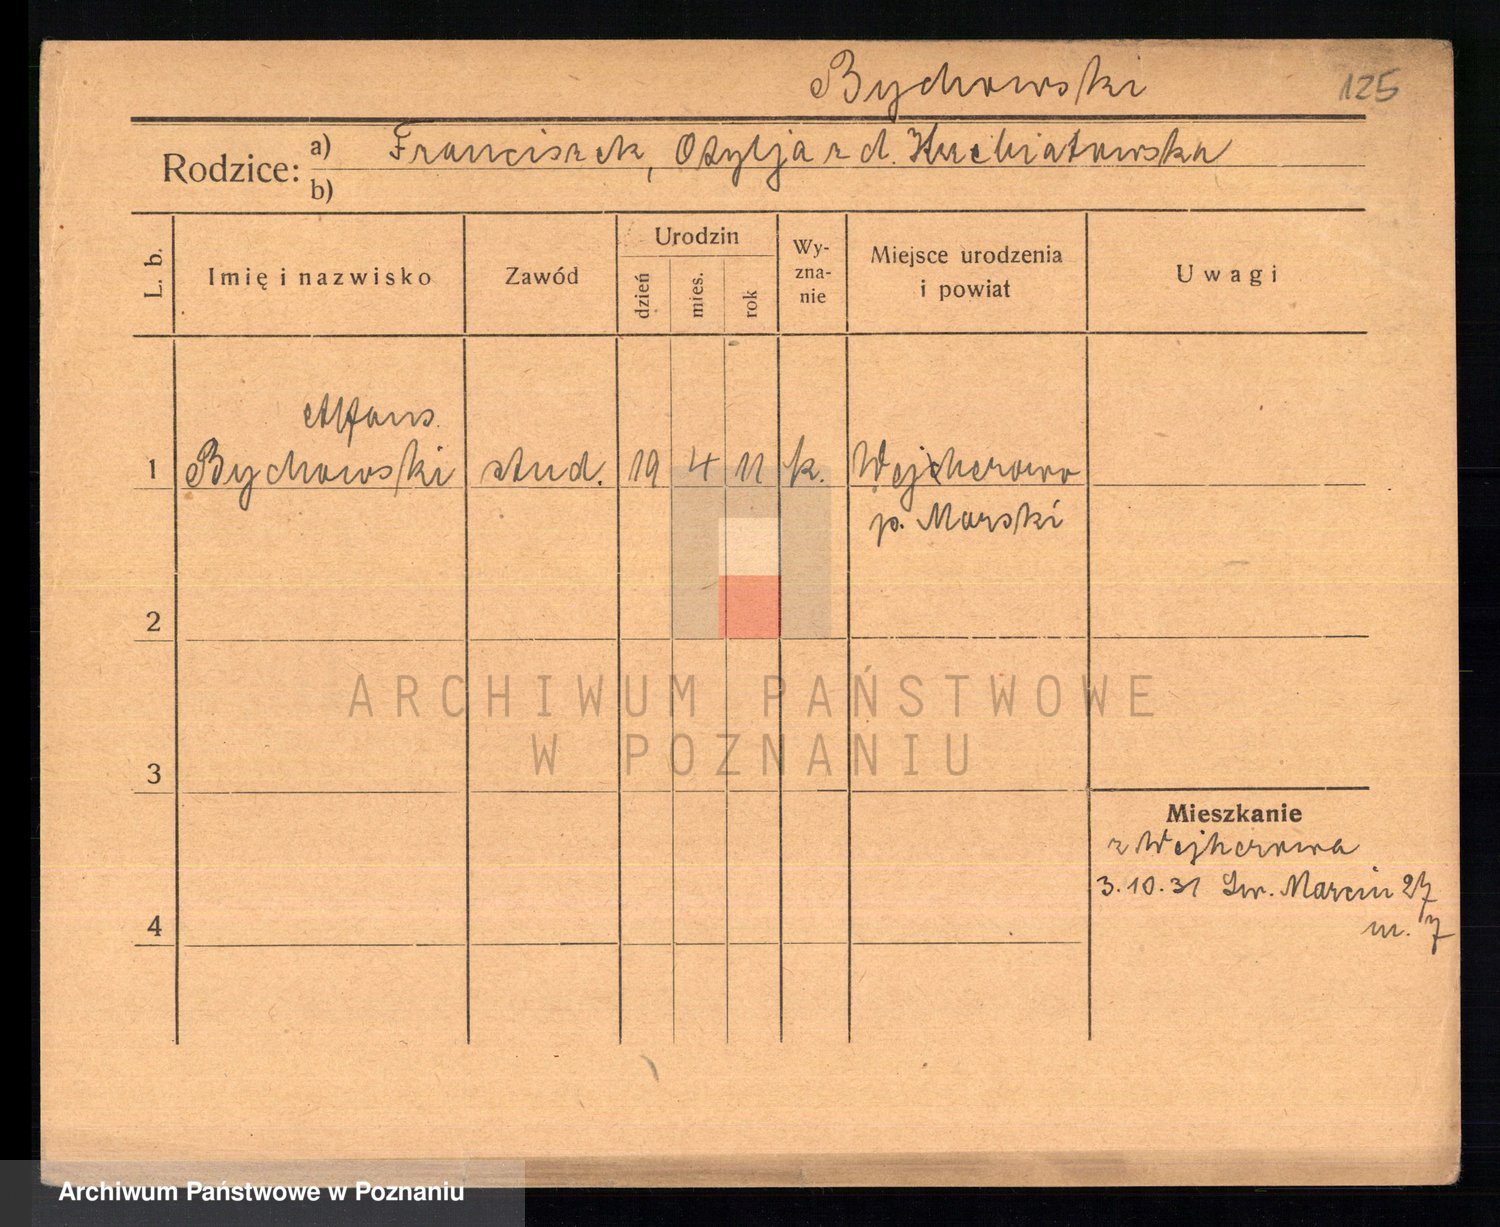 Bychowski
125
Rodzice: a) Franciszek, Otylja z d. Kuchiatowska
b)
L. b.
Imię i nazwisko
Zawód
Urodzin
dzień
mies.
rok
Wy-
zna-
nie
Miejsce urodzenia
i powiat
Uwagi
Alfons
1 Bychowski stud. 19 4 11 k. Wejcherowo
p. Morski
2
ARCHIWUM PAŃSTWOWE
W POZNANIU
3
Mieszkanie
z Wejherowa
3.10.31 Św. Marcin 27
m. 7
4
Archiwum Państwowe w Poznaniu